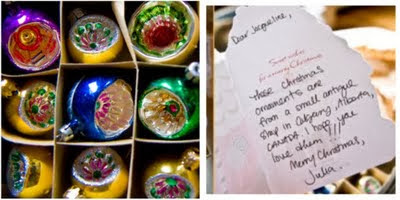 Dear Jacqueline,
Sweet wishes
for a merry Christmas
These Christmas
ornaments are
from a small antique
shop in Calgary, Alberta,
CANADA. I hope you
love them!!!
Merry Christmas,
Julia